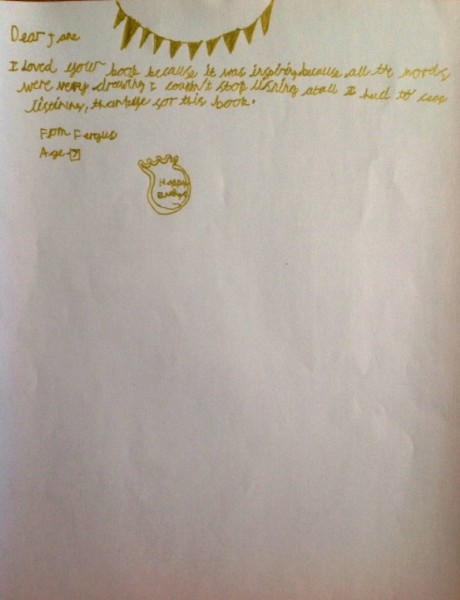 Dear Jane
I loved your book because it was inspiring because all the words
were very drawing I couldn't stop lisning atall I had to ceep
listining, thankyse for this book.
From Fergus
Age 7
Happy